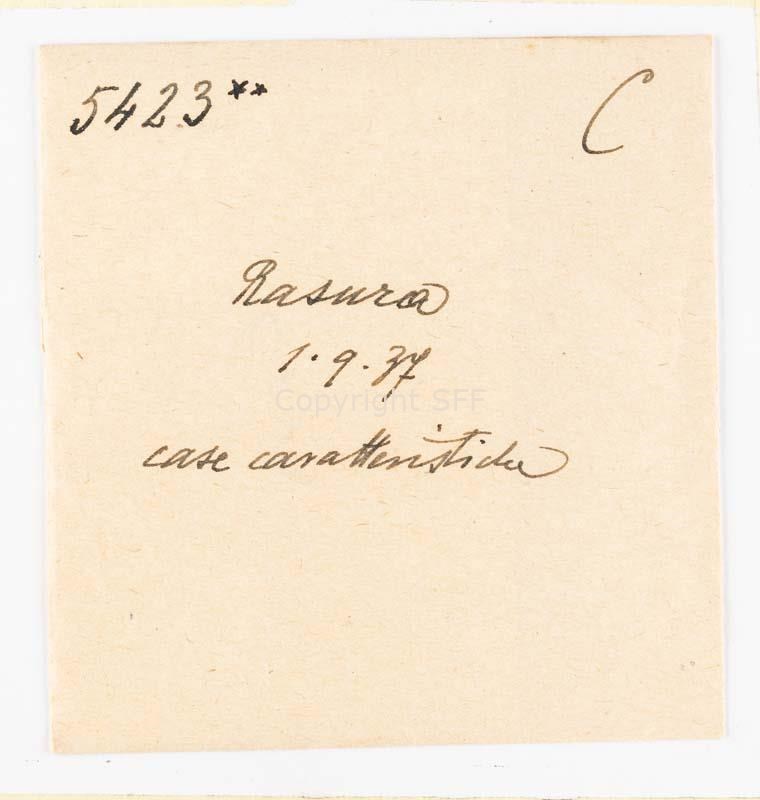 5423** C
Rasura
1.9.37
Copyright SFF
case caratteristiche